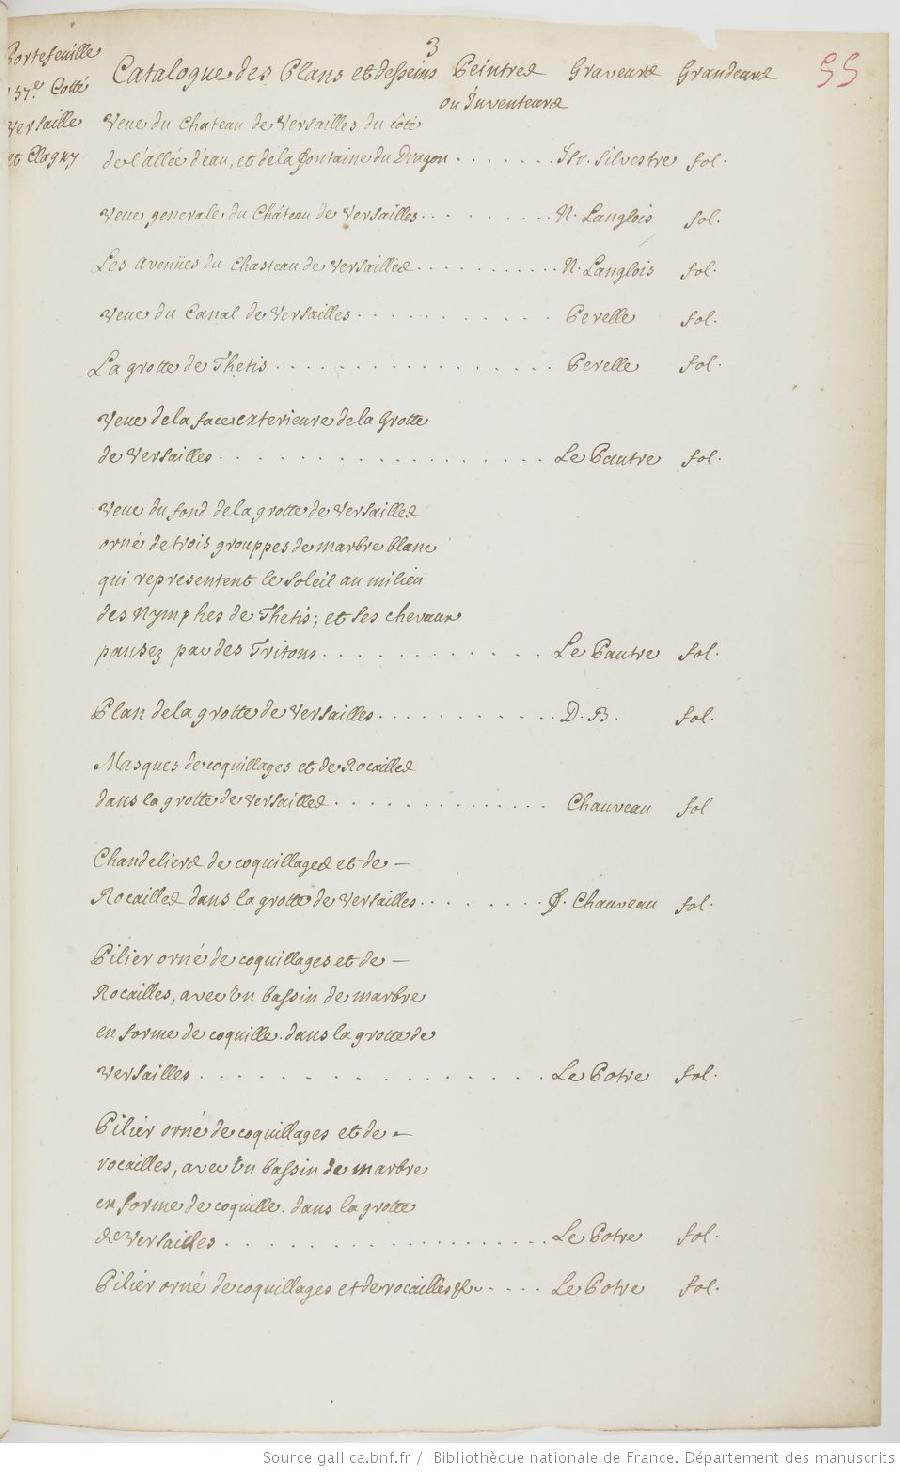 3
Portefeuille
157e. Cotté
Versaille
et Clagny
Catalogue des Plans et desseins Peintres Graveurs Grandeurs 55
ou Inventeurs
Veue du Chateau de Versailles du côté
de l'allée d'eau, et de la fontaine du Dragon . . . . . . . Isr. Silvestre fol.
Veue generale du Château de Versailles . . . . . . . . N. Langlois fol.
Les Avenües du Chasteau de Versailles . . . . . . . . . . . N. Langlois fol.
Veue du Canal de Versailles . . . . . . . . . . . Perelle fol.
La grotte de Thetis . . . . . . . . . . . . . . . . . Perelle fol.
Veue de la face exterieure de la Grotte
de Versailles . . . . . . . . . . . . . . . . . . Le Pautre fol.
Veue du fond de la grotte de Versailles
orné de trois grouppes de marbre blanc
qui representent le Soleil au milieu
des Nymphes de Thetis; et ses chevaux
pansez par des Tritons . . . . . . . . . . . . Le Pautre fol.
Plan de la grotte de Versailles . . . . . . . . . . . D. B. fol.
Masques de coquillages et de Rocailles
dans la grotte de Versailles . . . . . . . . . . . . . Chauveau fol
Chandeliers de coquillages et de —
Rocailles dans la grotte de Versailles . . . . . . . . F. Chauveau fol.
Pilier orné de coquillages et de —
Rocailles, avec un bassin de marbre
en forme de coquille. dans la grotte de
Versailles . . . . . . . . . . . . . . . . Le Potre fol.
Pilier orné de coquillages et de —
rocailles, avec un bassin de marbre
en forme de coquille. dans la grotte
de Versailles . . . . . . . . . . . . . . . . . Le Potre fol.
Pilier orné de coquillages et de rocailles &c . . . . Le Potre fol.
Source gallica.bnf.fr / Bibliothèque nationale de France. Département des manuscrits